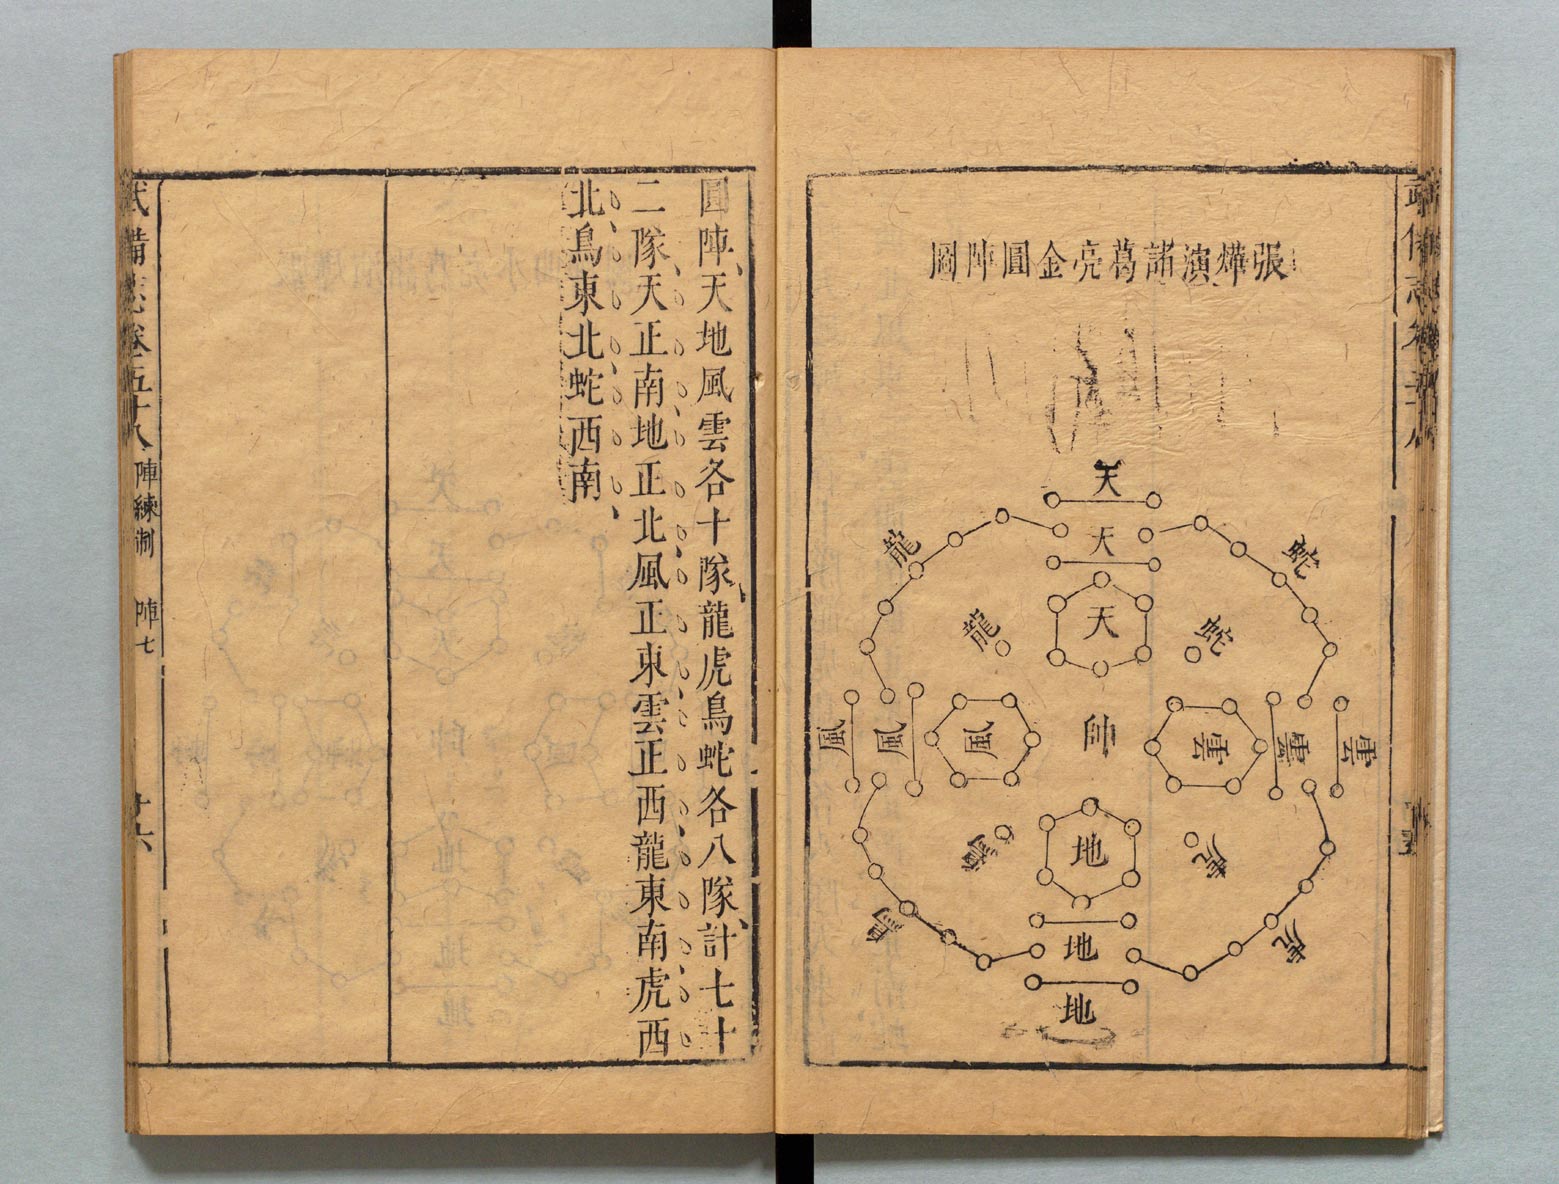 張燁演諸葛亮金圓陣圖
天
天
天
龍
龍
蛇
蛇
風
風
風
帥
雲
雲
雲
鳥
鳥
虎
虎
地
地
地
圓陣天地風雲各十隊龍虎鳥蛇各八隊計七十
二隊天正南地正北風正東雲正西龍東南虎西
北鳥東北蛇西南
武備志卷五十八 陣練制 陣七 廿六